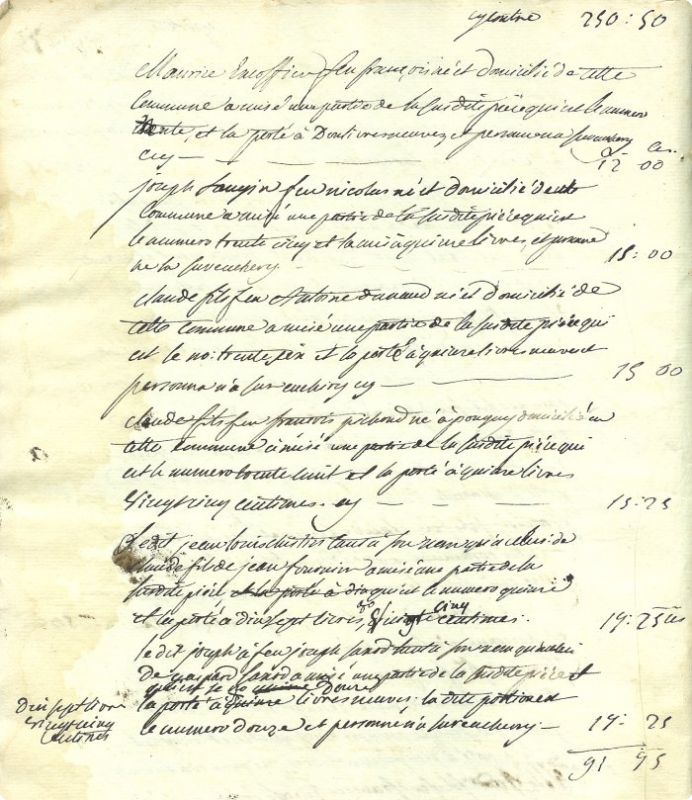 cy contre 250:50
Maurice Encoffier feu françois né et domicilié de cette
Commune a misé une partie de la susdite pièce qui est le numero
trente, et la porté à Douze livres neuves, et personne n'a surenchery
cy — 12 00
joseph feu nicolas né et domicilié de cette
Commune a misé une partie de la susdite pièce qui est
le numero trente cinq et la misé à quinze livres, et personne
ne la surenchery 15:00
claude fils feu Antoine dunand né et domicilié de
cette commune a misé une partie de la susdite pièce qui
est le no: trente six et la porté à quinze livres neuves et
personne n'a surenchery cy — 15 00
claude fils feu françois né à domicilié en
cette commune a misé une partie de la susdite pièce qui
est le numero trente huit et la porté à quinze livres
vingt cinq centimes. cy — 15:25
Ledit jean louis tant à son nom qu'a celui de
claude fils de jean fournier a misé une partie de la
susdite pièce et la porté à qui est le numero quinze
et la porté à dix sept livres, vingt cinq centimes. 17:25
le dit joseph à feu joseph tant à son nom qu'a celui
de gaspard a misé une partie de la susdite pièce et
qui est le douze
la porté à quinze livres neuves la dite portion est
dix sept livres
vingt cinq
centimes
le numero douze et personne n'a surenchery — 17: 25
91 75